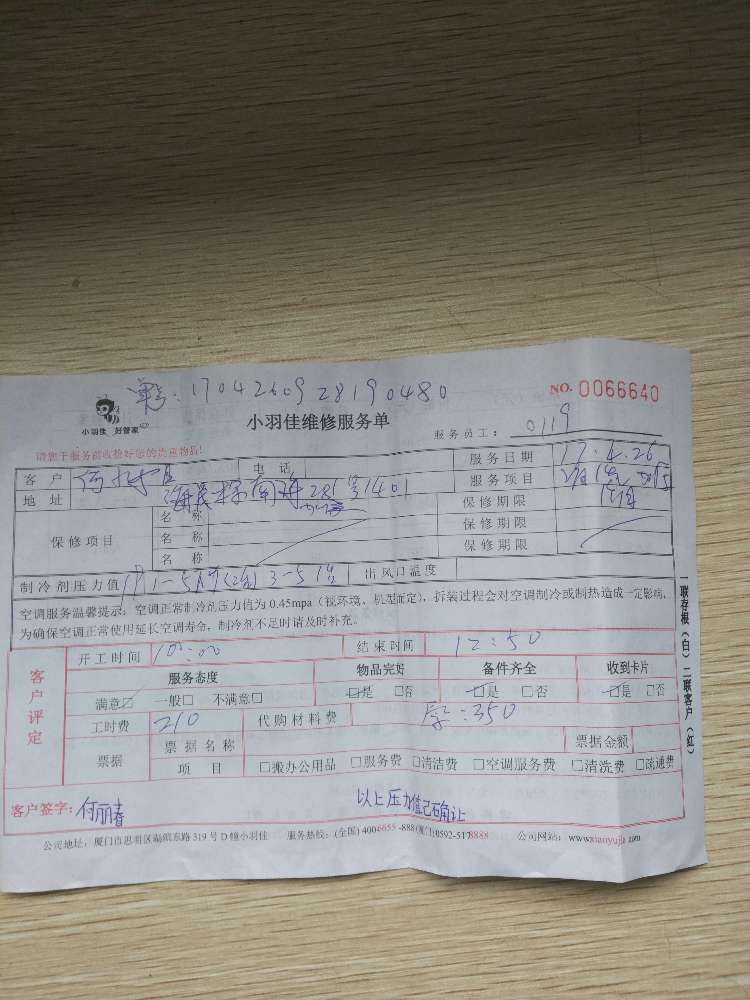 单号:17042609 28190480
NO. 0066640
小羽佳 好管家
小羽佳维修服务单
服务员工: 0119
请您于服务前收捡好您的贵重物品!
客户 电话 服务日期 17.4.26
地址 281号1401 服务项目
保修项目 名称 保修期限
名称 保修期限
名称 保修期限
制冷剂压力值 出风口温度
空调服务温馨提示:空调正常制冷剂压力值为 0.45mpa(视环境、机型而定),拆装过程会对空调制冷或制热造成一定影响,
为确保空调正常使用延长空调寿命,制冷剂不足时请及时补充。
客户评定
开工时间 10:00 结束时间 12:50
服务态度 物品完好 备件齐全 收到卡片
满意☑ 一般□ 不满意□ ☑是 □否 ☑是 □否 ☑是 □否
工时费 210 代购材料费 :350
票据 票据名称 票据金额
项目 □搬办公用品 □服务费 □清洁费 □空调服务费 □清洗费 □疏通费
客户签字: 何丽春 以上压力值已确认
公司地址:厦门市思明区湖滨东路 319 号 D 幢小羽佳 服务热线:(全国) 4006655-888(厦门)0592-5178888 公司网站:www.xiaoyujia.com
联存根(白) 二联客户(红)